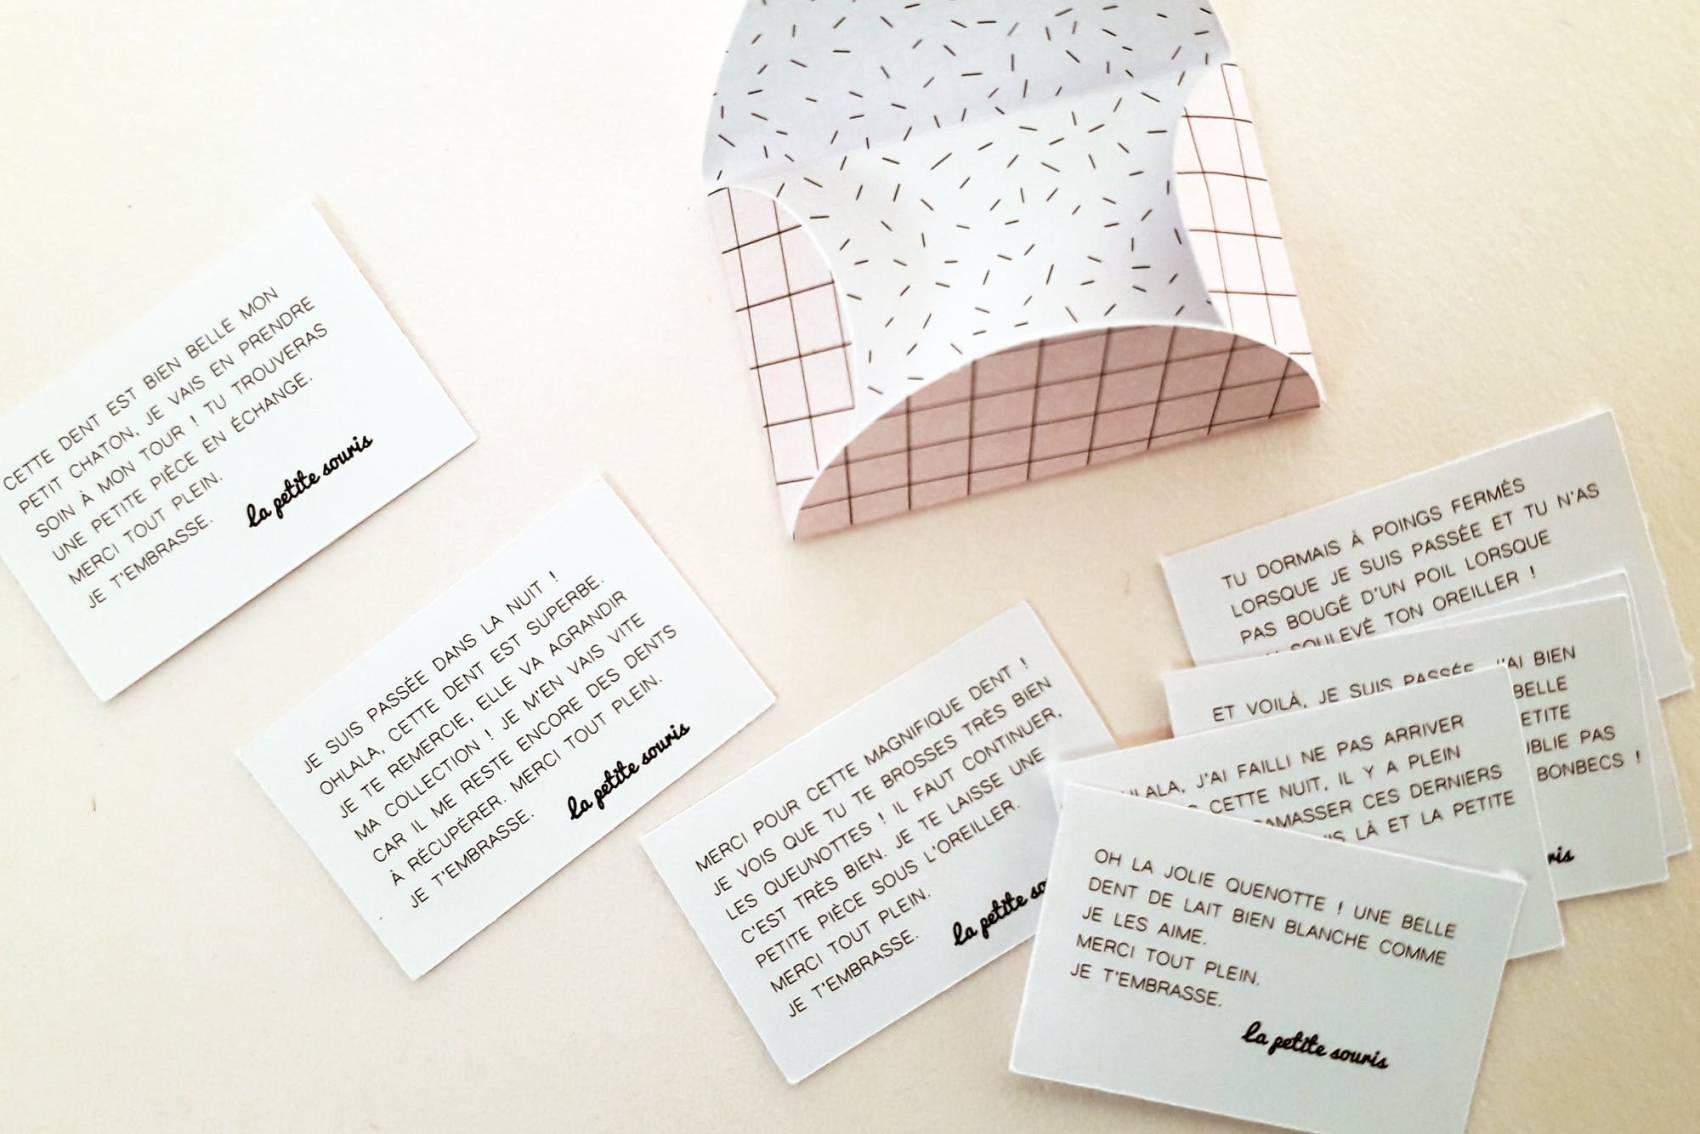 CETTE DENT EST BIEN BELLE MON
PETIT CHATON, JE VAIS EN PRENDRE
SOIN À MON TOUR ! TU TROUVERAS
UNE PETITE PIÈCE EN ÉCHANGE.
MERCI TOUT PLEIN.
JE T'EMBRASSE.
la petite souris
JE SUIS PASSÉE DANS LA NUIT !
OHLALA, CETTE DENT EST SUPERBE.
JE TE REMERCIE, ELLE VA AGRANDIR
MA COLLECTION ! JE M'EN VAIS VITE
CAR IL ME RESTE ENCORE DES DENTS
À RÉCUPÉRER. MERCI TOUT PLEIN.
JE T'EMBRASSE.
la petite souris
MERCI POUR CETTE MAGNIFIQUE DENT !
JE VOIS QUE TU TE BROSSES TRÈS BIEN
LES QUEUNOTTES ! IL FAUT CONTINUER,
C'EST TRÈS BIEN. JE TE LAISSE UNE
PETITE PIÈCE SOUS L'OREILLER.
MERCI TOUT PLEIN.
JE T'EMBRASSE.
la petite
TU DORMAIS À POINGS FERMÉS
LORSQUE JE SUIS PASSÉE ET TU N'AS
PAS BOUGÉ D'UN POIL LORSQUE
SOULEVÉ TON OREILLER !
ET VOILÀ, JE SUIS PASSÉE, J'AI BIEN
BELLE
PAS
BONBECS !
J'AI FAILLI NE PAS ARRIVER
CETTE NUIT, IL Y A PLEIN
CES DERNIERS
LÀ ET LA PETITE
OH LA JOLIE QUENOTTE ! UNE BELLE
DENT DE LAIT BIEN BLANCHE COMME
JE LES AIME.
MERCI TOUT PLEIN.
JE T'EMBRASSE.
la petite souris